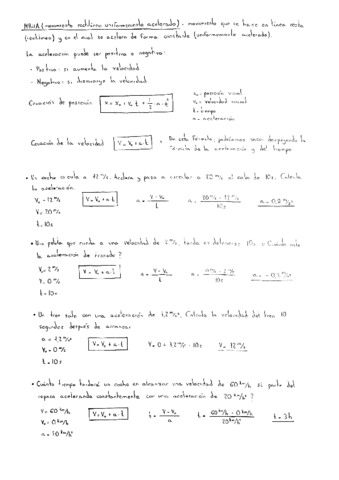 MRUA (movimiento rectilíneo uniformemente acelerado) - movimiento que se hace en línea recta
(rectilíneo) y en el cual se acelera de forma constante (uniformemente acelerado).
La aceleración puede ser positiva o negativa:
- Positiva: si aumenta la velocidad
- Negativa: si disminuye la velocidad
Ecuación de posición
x = x₀ + v₀ · t + 1/2 · a · t²
x₀ = posición inicial
v₀ = velocidad inicial
t = tiempo
a = aceleración
Ecuación de la velocidad
V = V₀ + a · t
De esta fórmula, podríamos sacar despejando la
fórmula de la aceleración y del tiempo
• Un coche circula a 12 m/s. Acelera y pasa a circular a 20 m/s al cabo de 10s. Calcula
la aceleración.
V₀ = 12 m/s
V = 20 m/s
t = 10s
V = V₀ + a · t
a = V - V₀ / t
a = 20 m/s - 12 m/s / 10s
• Una pelota que rueda a una velocidad de 2 m/s, tarda en detenerse 10s. ¿Cuánto vale
la aceleración de frenado?
V₀ = 2 m/s
V = 0 m/s
t = 10s
V = V₀ + a · t
a = V - V₀ / t
a = 0 m/s - 2 m/s / 10s
a = -0,2 m/s²
• Un tren sale con una aceleración de 1,2 m/s². Calcula la velocidad del tren 10
segundos después de arrancar.
a = 1,2 m/s²
V₀ = 0 m/s
t = 10s
V = V₀ + a · t
V = 0 + 1,2 m/s² · 10s
V = 12 m/s
• Cuánto tiempo tardará un coche en alcanzar una velocidad de 60 km/h si parte del
reposo acelerando constantemente con una aceleración de 20 km/h²?
V = 60 km/h
V₀ = 0 km/h
V = V₀ + a · t
t = V - V₀ / a
t = 60 km/h - 0 km/h / 20 km/h²
t = 3h